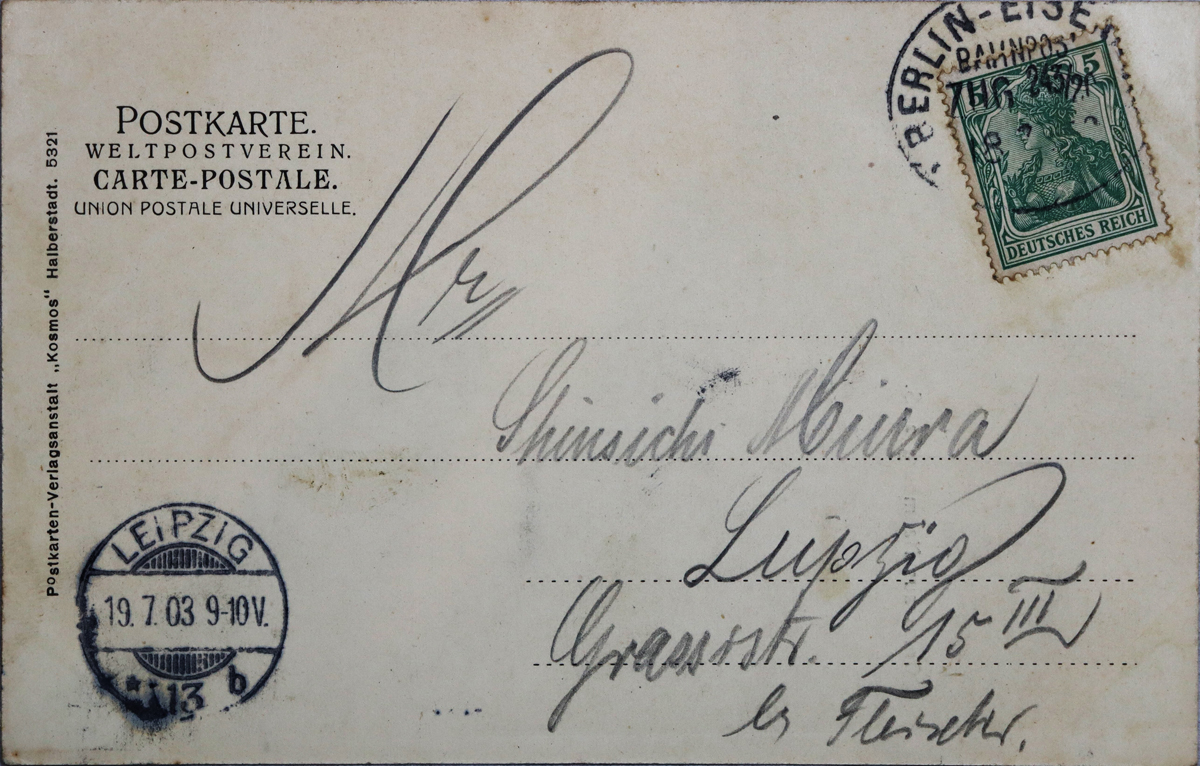 POSTKARTE.
WELTPOSTVEREIN.
CARTE-POSTALE.
UNION POSTALE UNIVERSELLE.
Postkarten-Verlagsanstalt „Kosmos“ Halberstadt. 5321
BERLIN-EISE
BAHNPOS
5
DEUTSCHES REICH
Hr
Shinsichi Miura
Leipzig
Grassistr. 15 III
b/ Fleischer.
LEIPZIG
19. 7. 03 9-10V.
13 b